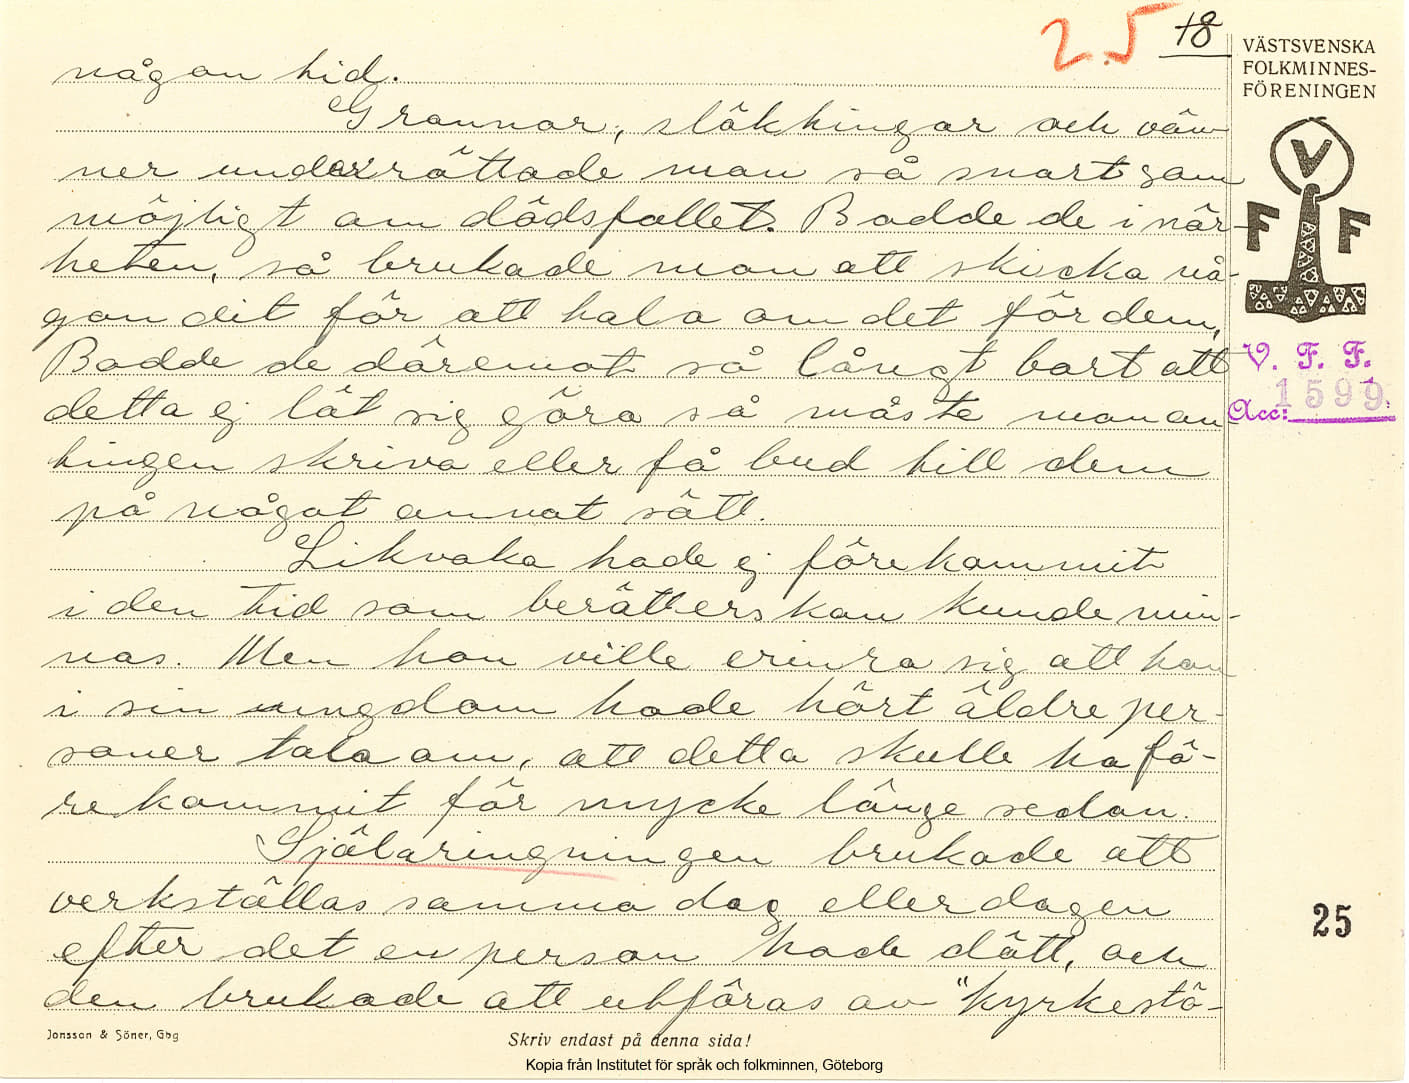 25 18
VÄSTSVENSKA
FOLKMINNES-
FÖRENINGEN
V
F F
V. F. F.
Acc: 1599.
någon tid.
Grannar, släktingar och vän-
ner underrättade man så snart som
möjligt om dödsfallet. Bodde de i när-
heten, så brukade man att skicka nå-
gon dit för att tala om det för dem,
Bodde de däremot så långt bort att
detta ej lät sig göra så måste man an-
tingen skriva eller få bud till dem
på något annat sätt.
Likvaka hade ej förekommit
i den tid som berätterskan kunde min-
nas. Men hon ville erinra sig att hon
i sin ungdom hade hört äldre per-
soner tala om, att detta skulle ha fö-
rekommit för mycke länge sedan.
Själaringningen brukade att
verkställas samma dag eller dagen
efter det en person hade dött, och
den brukade att utföras av "kyrkestö-
25
Jonsson & Söner, Gbg
Skriv endast på denna sida!
Kopia från Institutet för språk och folkminnen, Göteborg